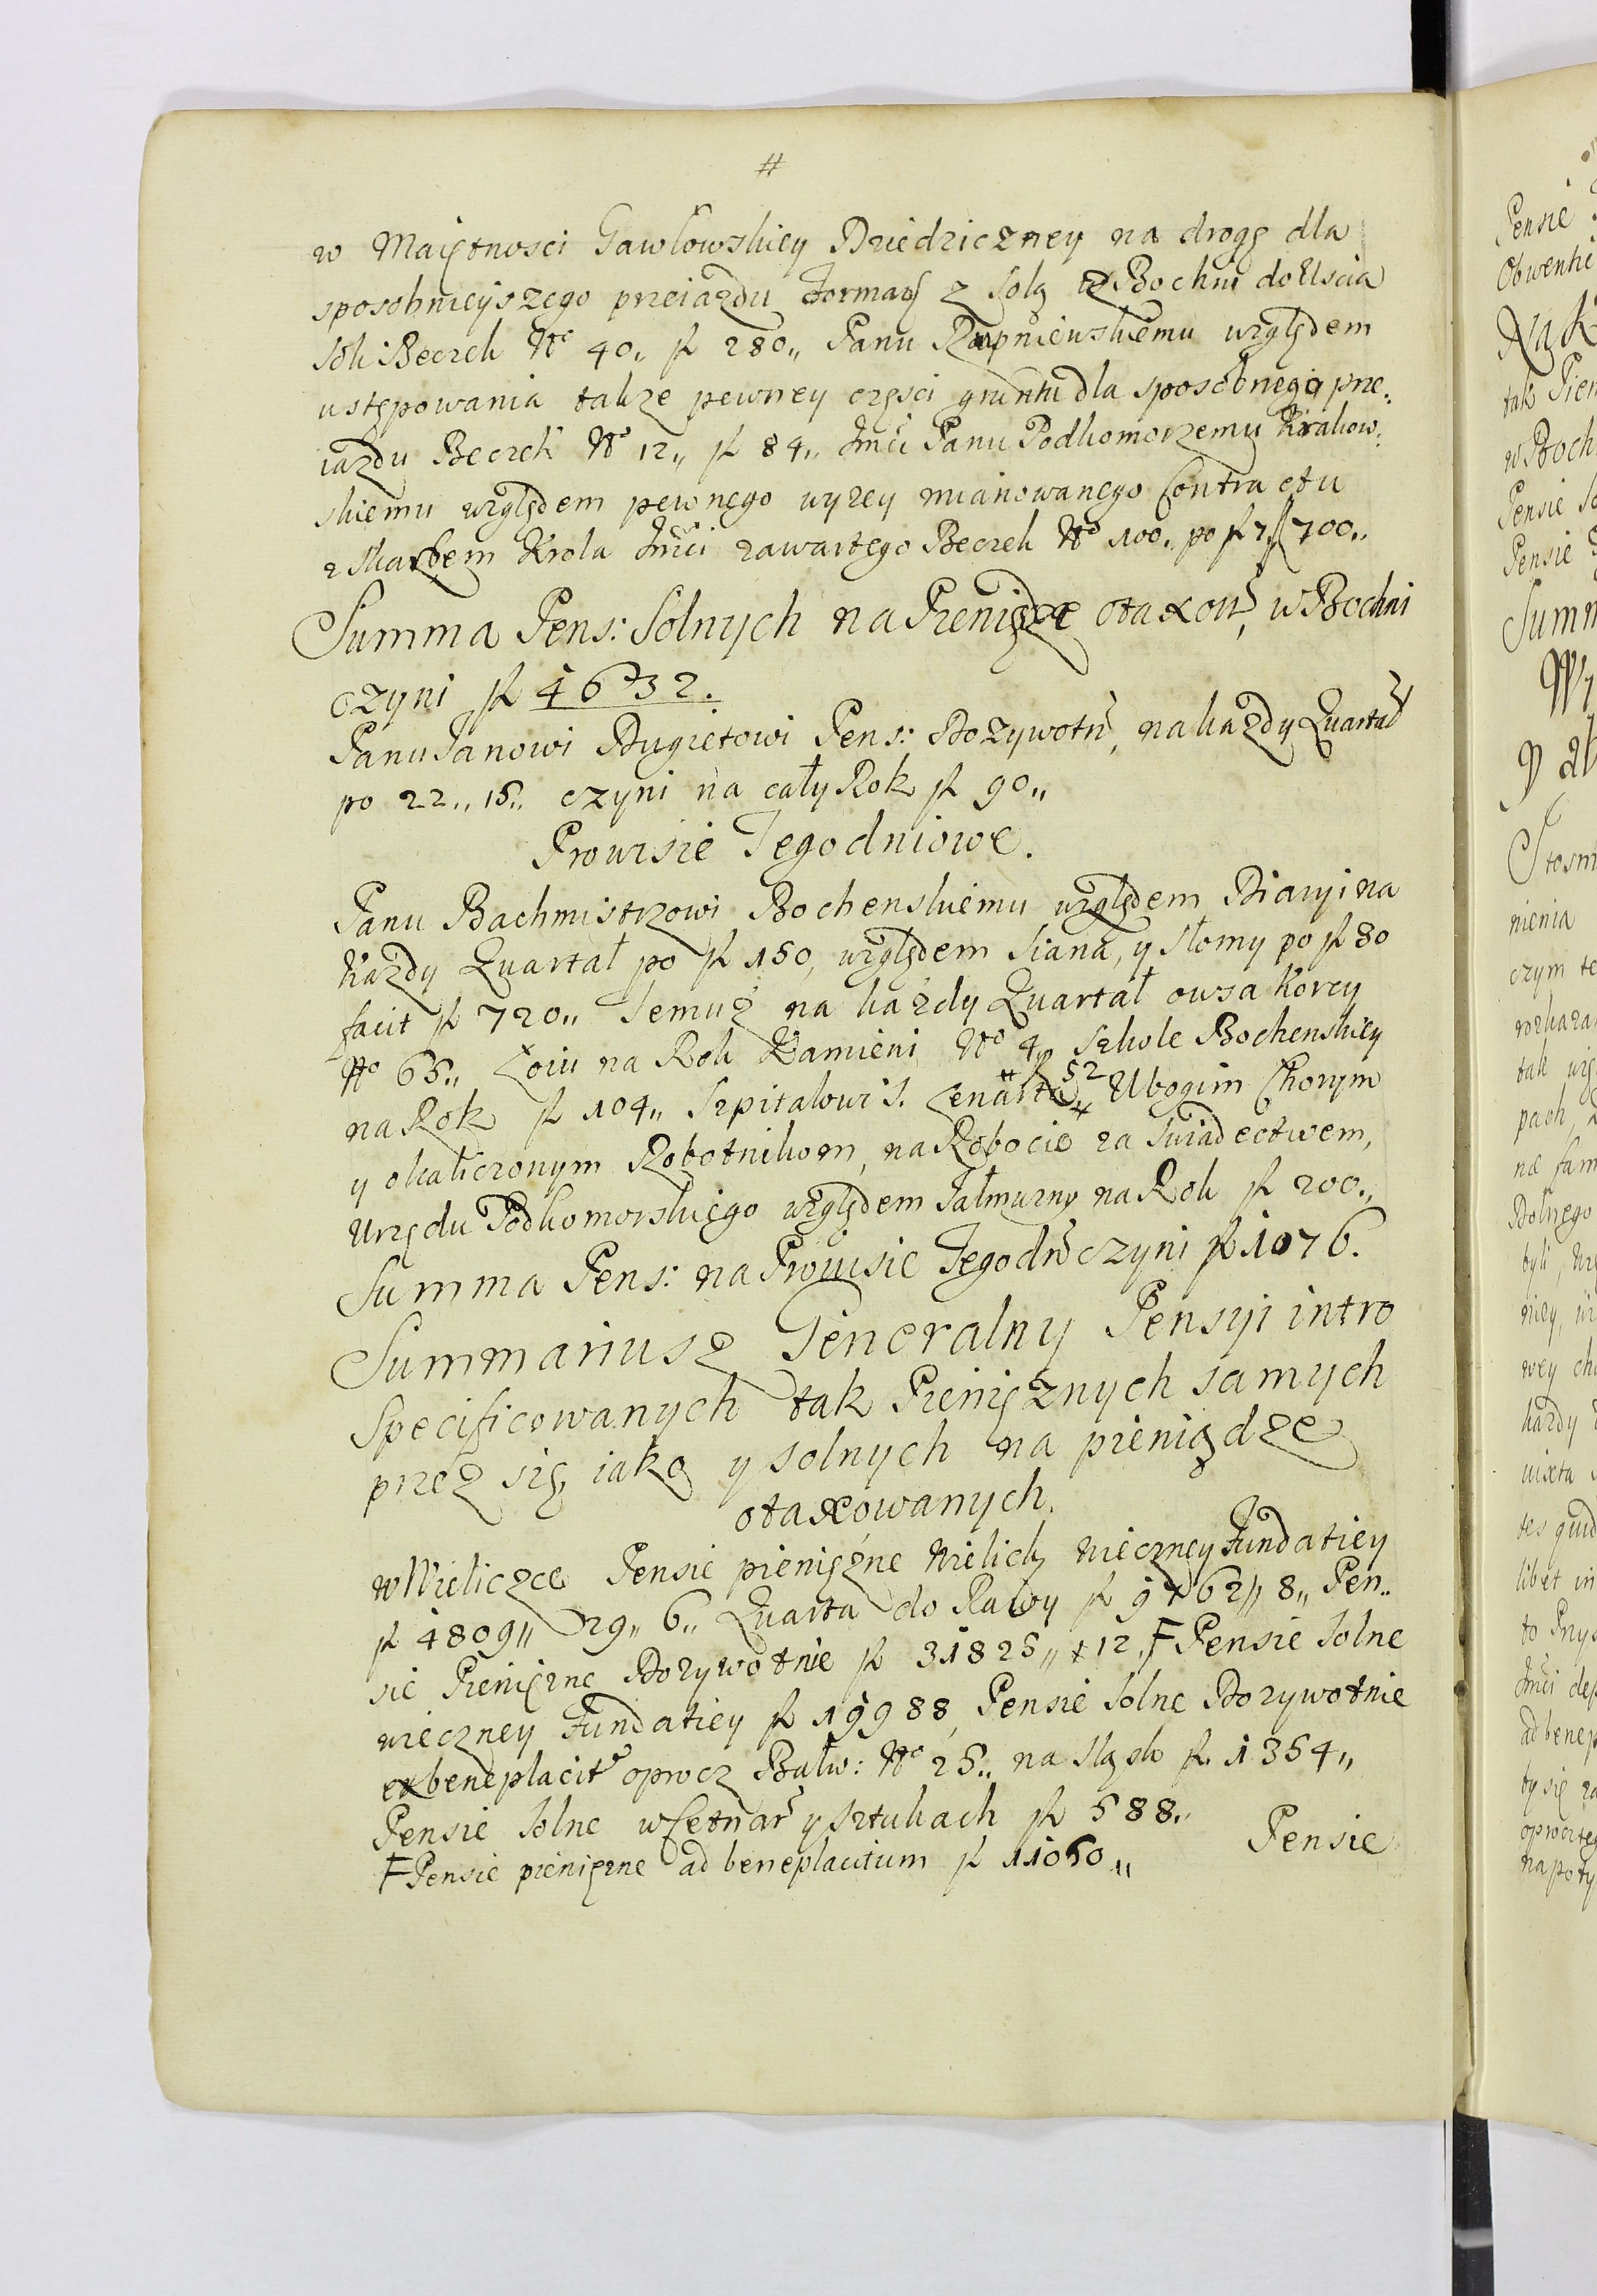 #
w Maiętnosci Gawłowskiey Dziedziczney na drogę dla
sposobnieyszego przeiazdu Forman̄ z solą z Bochni do Uscia
soli Beczek No 40„ fl 280„ Panu Rupniewskiemu względem
ustępowania takze pewney częsci gruntu dla sposobnego prze„
iazdu Beczek No 12„ fl 84„ Jmći Panu Podkomorzemu Krakow„
skiemu względem pewnego wyzey mianowanego Contractu
z Skarbem Krola Jmći zawartego Beczek No 100„ po fl 7„ fl 700„
Summa Pens: Solnych na Pieniądze otaxow̄, w Bochni
czyni fl 4632.
Panu Janowi Dugietowi Pens: Dozywotn̄, na kazdy Quartał
po 22„ 15„ czyni na cały Rok fl 90„
Prowisie Tegodniowe.
Panu Bachmistrzowi Bochenskiemu względem Diaryi na
kazdy Quartał po fl 150, względem siana, y słomy po fl 30
facit fl 720„ Temuz na kazdy Quartał owsa Korcy
No 65„ Łoiu na Rok Kamieni No 4„ Szkole Bochenskiey
na Rok fl 104„ Szpitalowi S. Lenarta # fl 52 # Ubogim Chorym
y okaliczonym Robotnikom, na Robocie za swiadectwem,
Urzędu Podkomorskiego względem Jałmuzny na Rok fl 200„
Summa Pens: na Prowisie Tegodn̄ czyni fl 1076.
Summariusz Generalny Pensyi intro
specificowanych tak Pienięznych samych
przez się, iako y solnych na pieniądze
otaxowanych.
w Wieliczce Pensie pienięzne Wielick, wieczney Fundatiey
fl 4809„ 29„ 6„ Quarta do Rawy fl 9762„ 8„ Pen„
sie Pienięzne Dozywotnie fl 31825„ 12„ F Pensie solne
wieczney Fundatiey fl 19988, Pensie solne Dozywotnie
ex beneplacit̄ oprocz Bałw: No 25„ na Sląsk fl 1354„
Pensie solne w Cetnar̄ y sztukach fl 588„
F Pensie pienięzne ad beneplacitum fl 11050„
Pensie